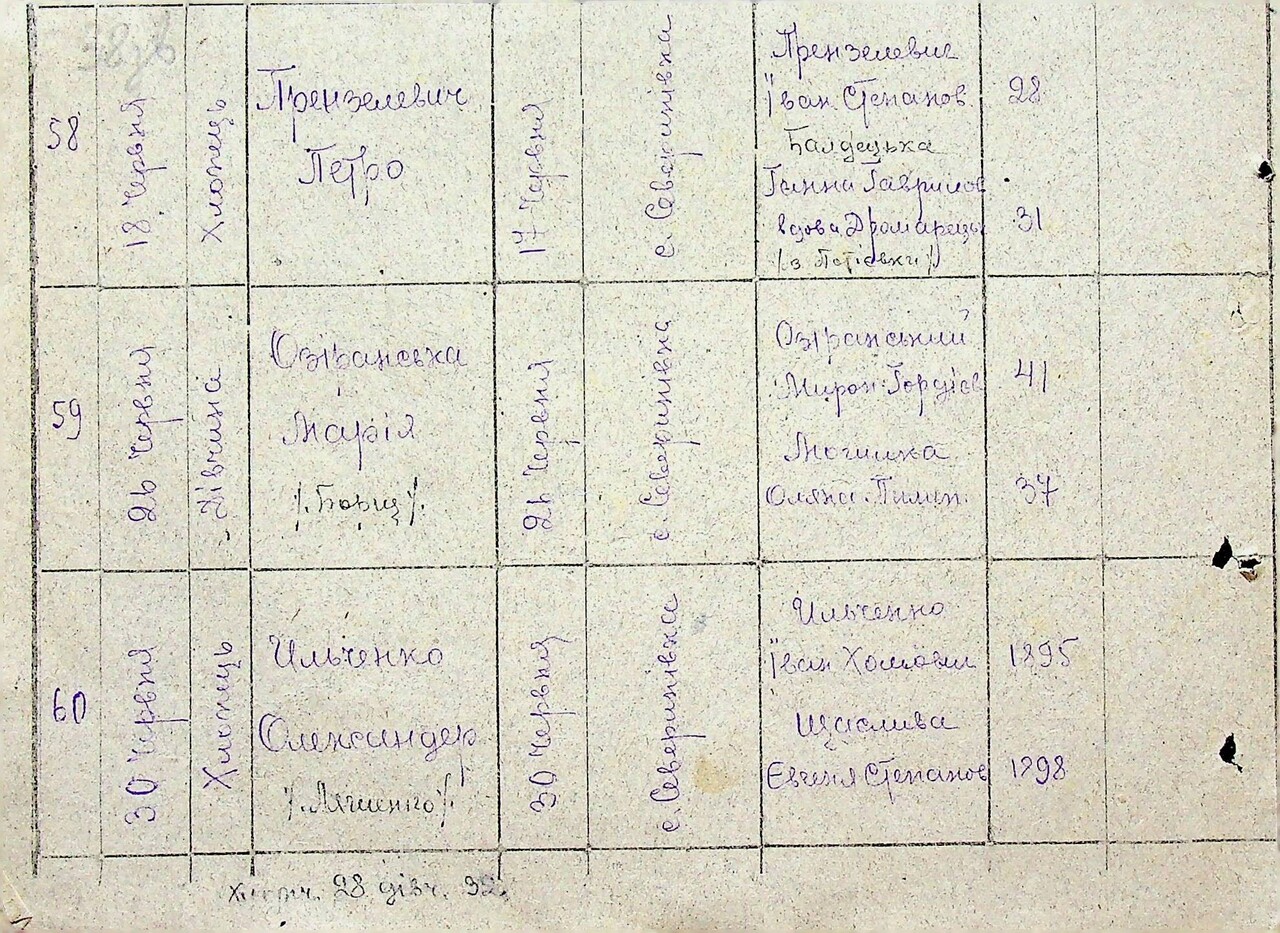 58
18 Червня
Хлопець
Прензелевич
Петро
17 Червня
с. Северинівка
Прензелевич
Їван Степанов
28
Балдецька
Ганна Гаврилов
вдова Дромарецьк
31
/з Потієвки/
59
26 Червня
Дівчина
Озіранська
Марія
/.Борщ/.
26 Червня
с. Северинівка
Озіранський
Мирон Гордієв
41
Могилка
Оляна Пилип.
37
60
30 Червня
Хлопець
Ильченко
Олександер
30 Червня
с. Северинівка
Ильченко
Їван Хомович
1895
Щаслива
Євгенія Степанов
1898
хлопч. 28 дівч. 32.